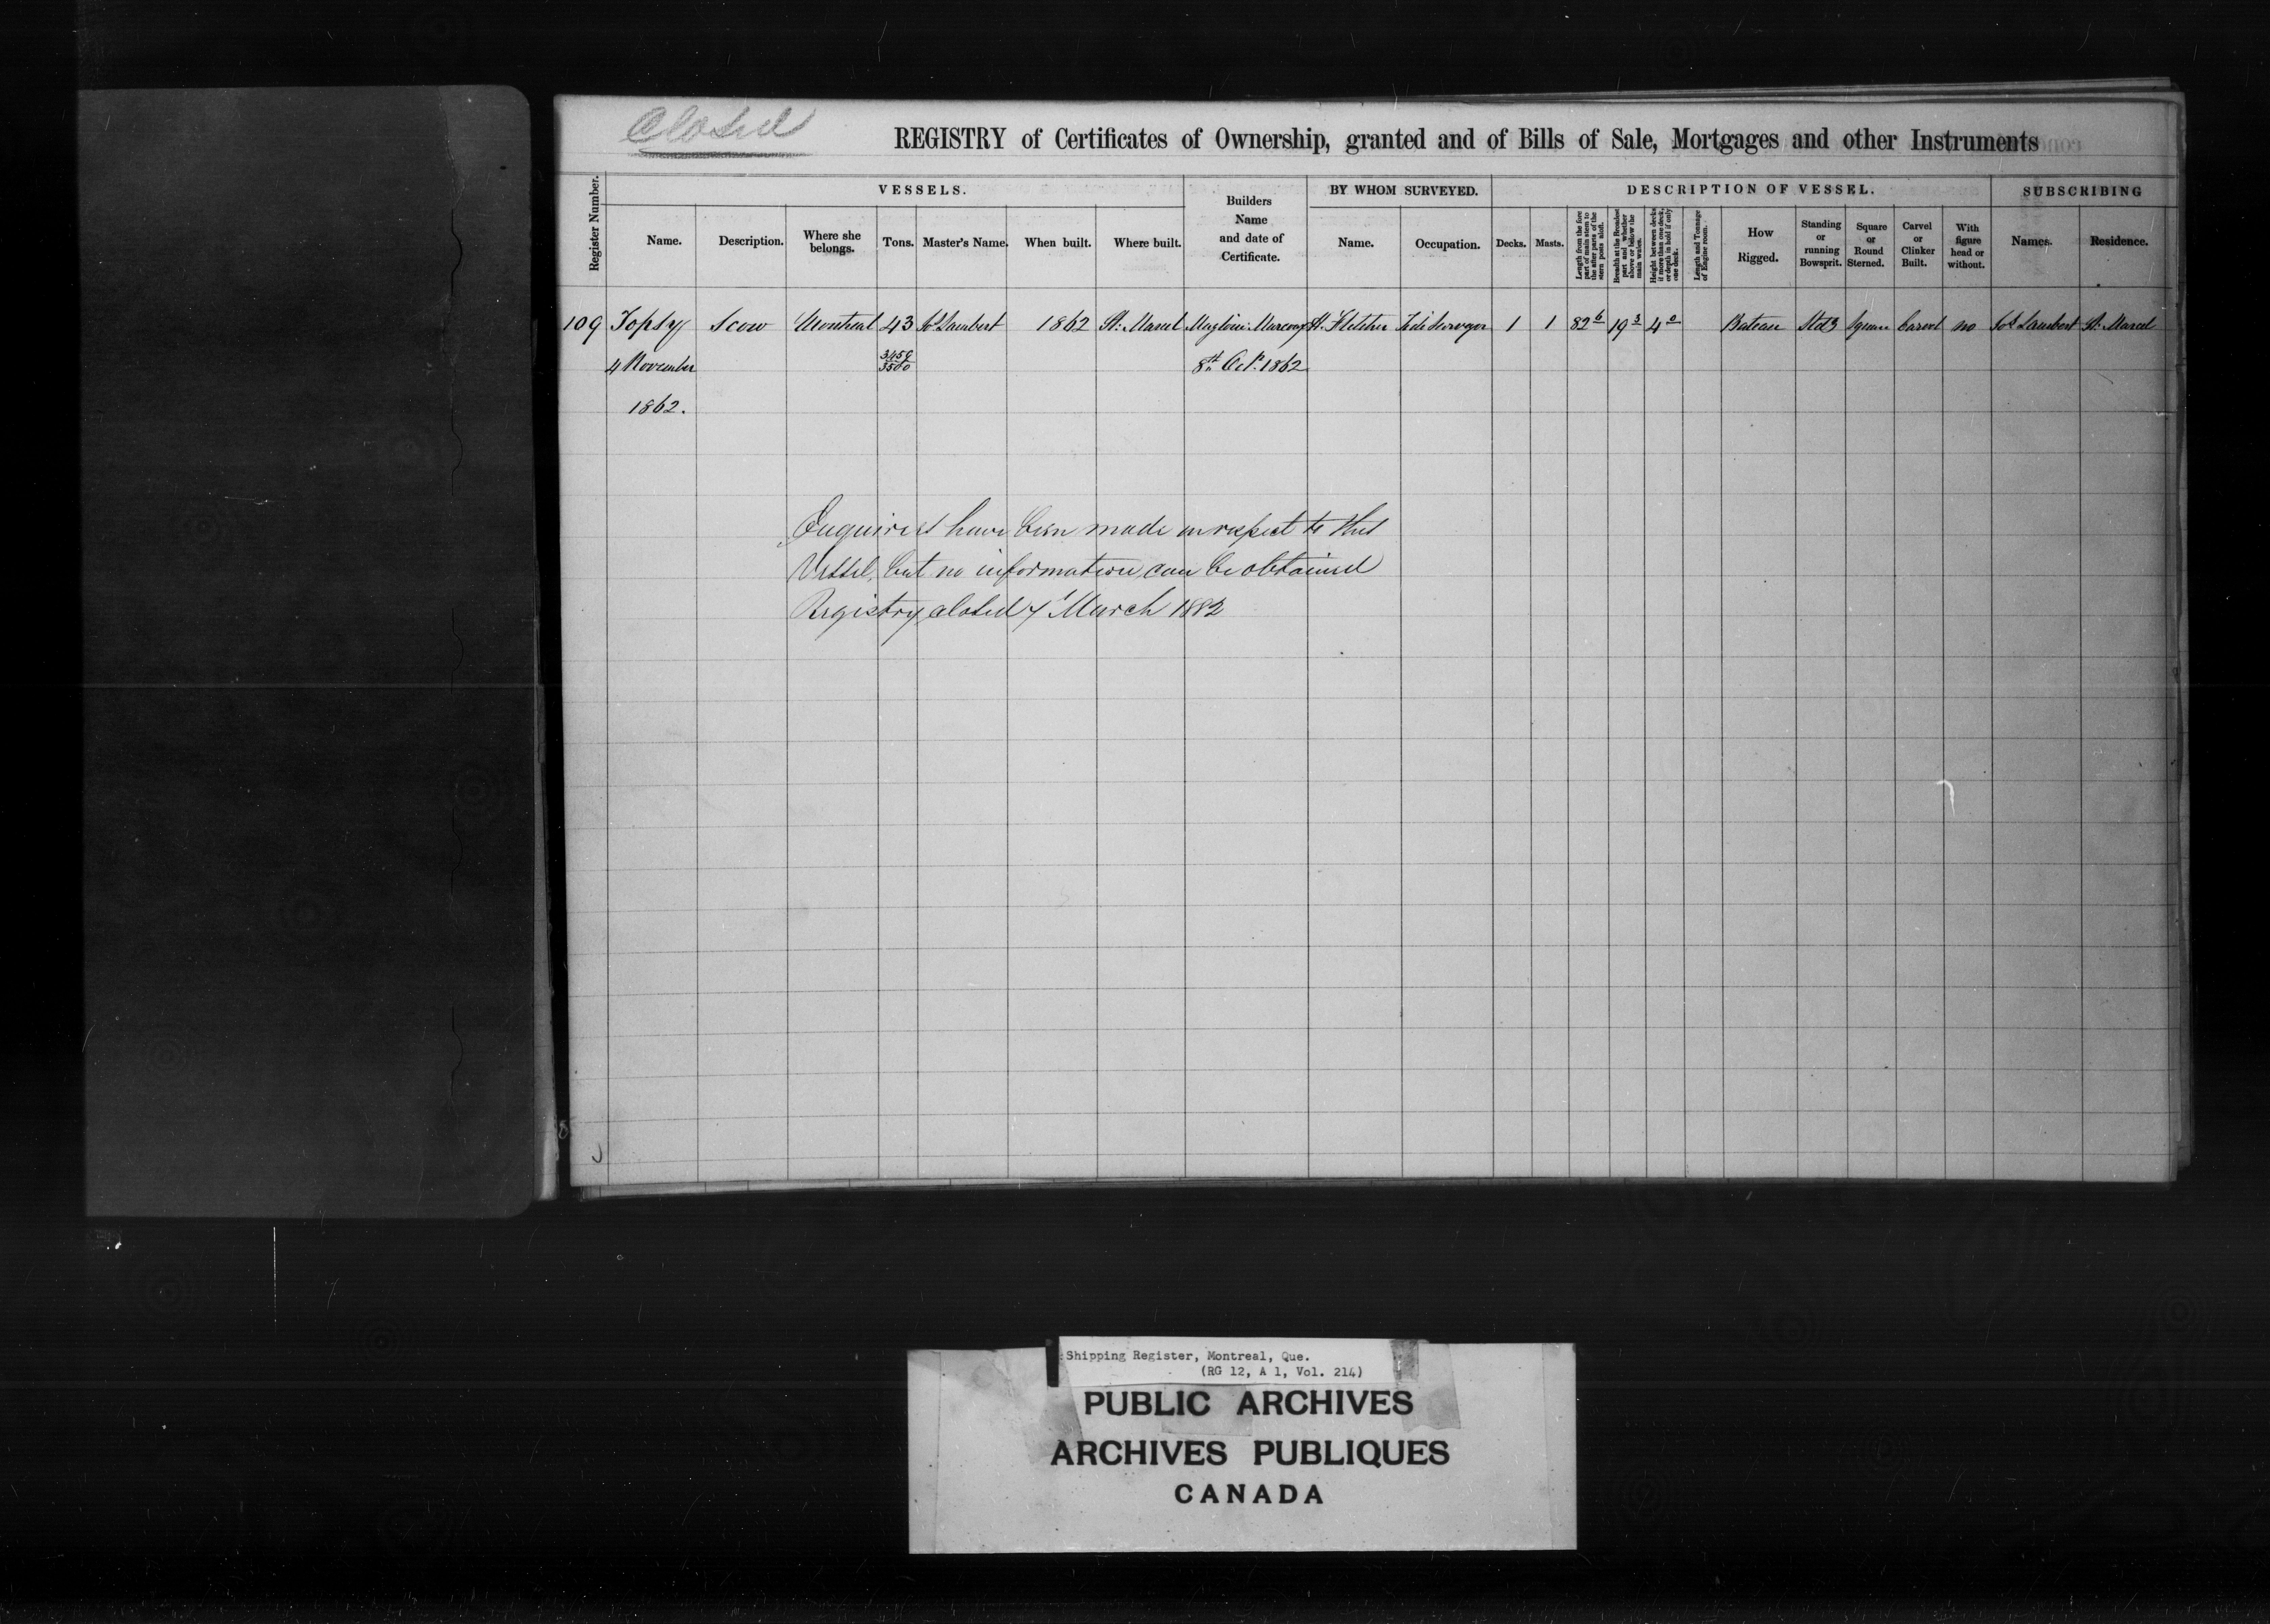 Closed
REGISTRY of Certificates of Ownership, granted and of Bills of Sale, Mortgages and other Instruments
Register Number.
VESSELS.
Name.
Description.
Where she belongs.
Tons.
Master's Name.
When built.
Where built.
Builders Name and date of Certificate.
BY WHOM SURVEYED.
Name.
Occupation.
DESCRIPTION OF VESSEL.
Decks.
Masts.
Length from the fore part of main stem to the after parts of the stern posts aloft.
Breadth at the Broadest part and whether above or below the main wales.
Height between decks if more than one deck, or depth in hold if only one deck.
Length and Tonnage of Engine room.
How Rigged.
Standing or running Bowsprit.
Square or Round Sterned.
Carvel or Clinker Built.
With figure head or without.
SUBSCRIBING
Names.
Residence.
109 Topsy Scow Montreal 43 Jos Lambert 1862 St. Marcel H. Fletcher 1 1 82 6 19 3 4 0 Bateau Stdg Square Carvel no Jos Lambert St. Marcel
4 November 3459/3500 8th Oct. 1862
1862.
Enquiries have been made in respect to this
Vessel, but no information can be obtained
Registry closed 4 March 1882
Shipping Register, Montreal, Que.
(RG 12, A 1, Vol. 214)
PUBLIC ARCHIVES
ARCHIVES PUBLIQUES
CANADA